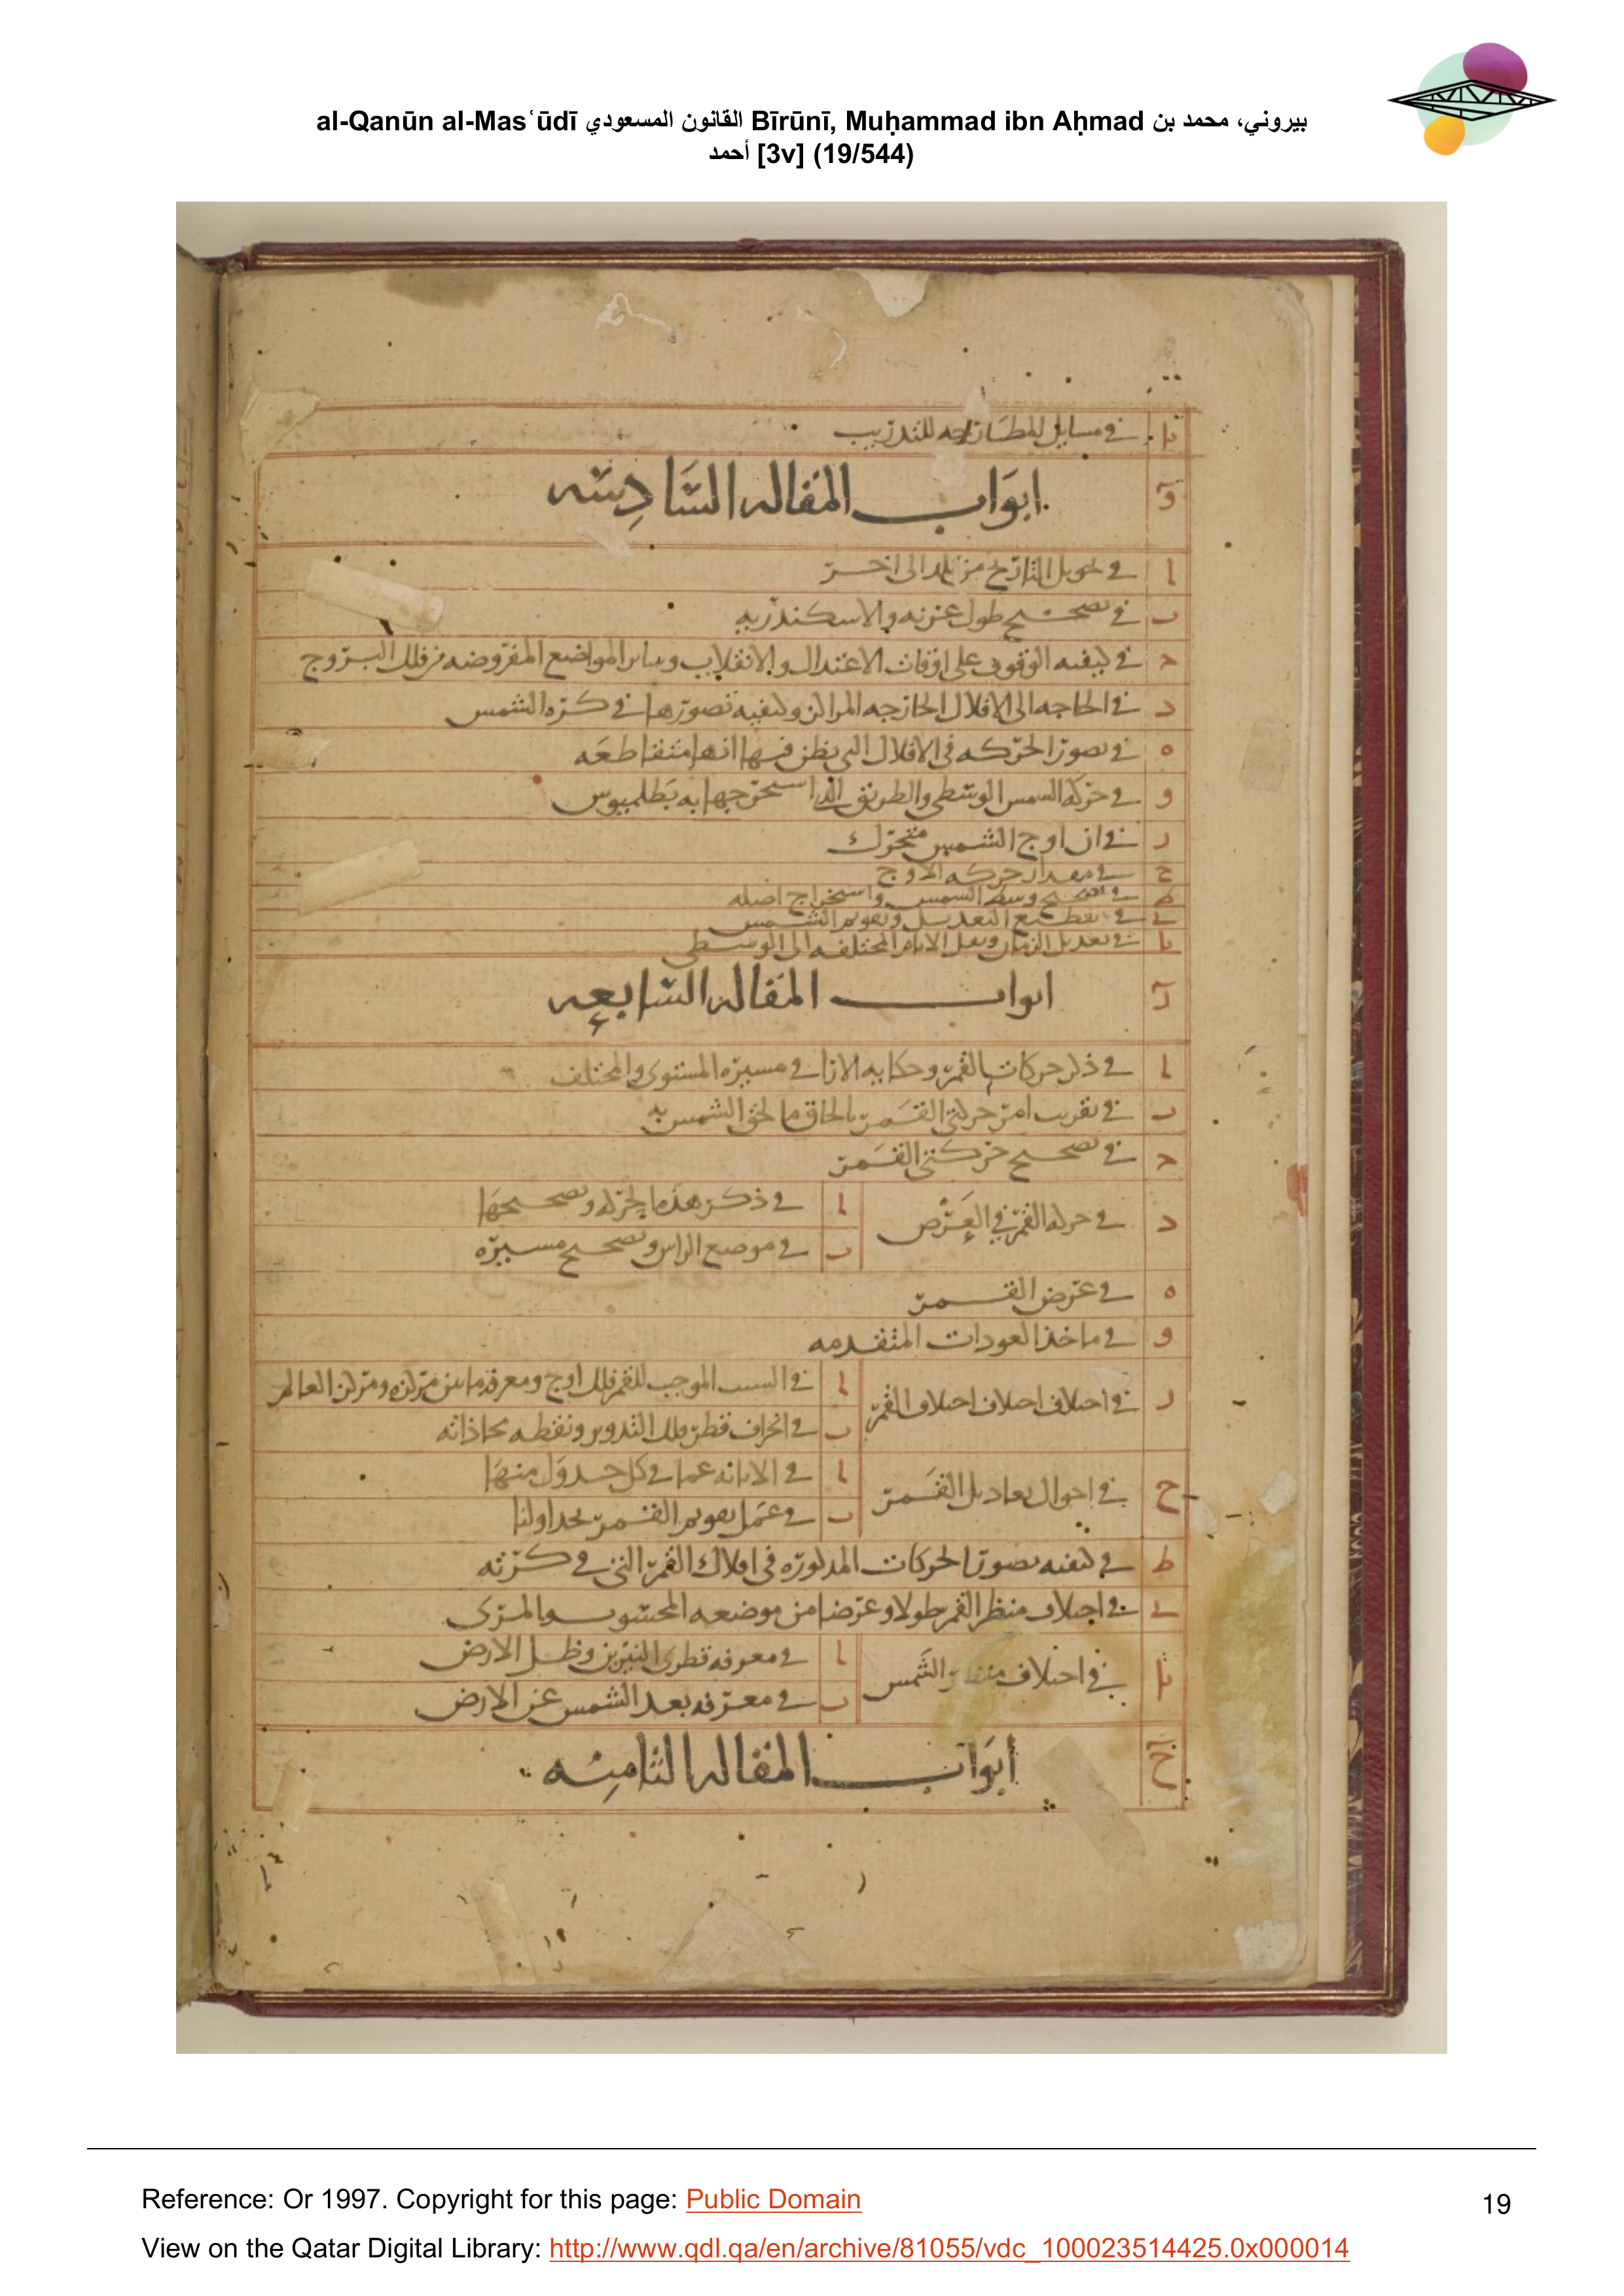 al-Qanūn al-Masʿūdī القانون المسعودي Bīrūnī, Muḥammad ibn Aḥmad بيروني، محمد بن
أحمد [3v] (19/544)
يا في مسايل للتدريب
و ابواب المقاله السادسه
ا في تحويل التاريخ من بلد الى اخر
ب في تصحيح طول غزنه والاسكندريه
ج في كيفيه الوقوف على اوقات الاعتدال والانقلاب وساير المواضع المفروضه من فلك البروج
د في الحاجه الى الافلاك الخارجه المراكز وكيفيه تصورها في كره الشمس
ه في تصور الحركه في الافلاك التي يظن فيها انها متقاطعه
و في حركه الشمس الوسطى والطريق الذي استخرجها به بطلميوس
ز في ان اوج الشمس متحرك
ح في مقدار حركه الاوج
ط في تصحيح وسط الشمس واستخراج اصله
ي في تقطيع التعديل وتقويم الشمس
يا في تعديل الزمان ونقل الايام المختلفه الى الوسطى
ز ابواب المقاله السابعه
ا في ذكر حركات القمر وحكايه الارا في مسيره المستوى والمختلف
ب في تقريب امر حركتي القمر بالحاق ما لحق الشمس به
ج في تصحيح حركتي القمر
د في حركه القمر في العرض
ا في ذكر هذه الحركه وتصحيحها
ب في موضع الراس وتصحيح مسيره
ه في عرض القمر
و في ماخذ العودات المتقدمه
ز في اختلاف اختلاف اختلاف القمر
ا في السبب الموجب للقمر فلك اوج ومعرفه ما بين مركزه ومركز العالم
ب في انحراف قطر فلك التدوير ونقطه محاذاته
ح في احوال تعاديل القمر
ا في الابانه عما في كل جدول منها
ب في عمل تقويم القمر بجداولنا
ط في كيفيه تصور الحركات المذكوره في افلاك القمر التي في كرته
ي في اختلاف منظر القمر طولا وعرضا من موضعه المحسوب والمرى
يا في اختلاف منظر الشمس
ا في معرفه قطرى النيرين وظل الارض
ب في معرفه بعد الشمس عن الارض
ح ابواب المقاله الثامنه
Reference: Or 1997. Copyright for this page: Public Domain
19
View on the Qatar Digital Library: http://www.qdl.qa/en/archive/81055/vdc_100023514425.0x000014